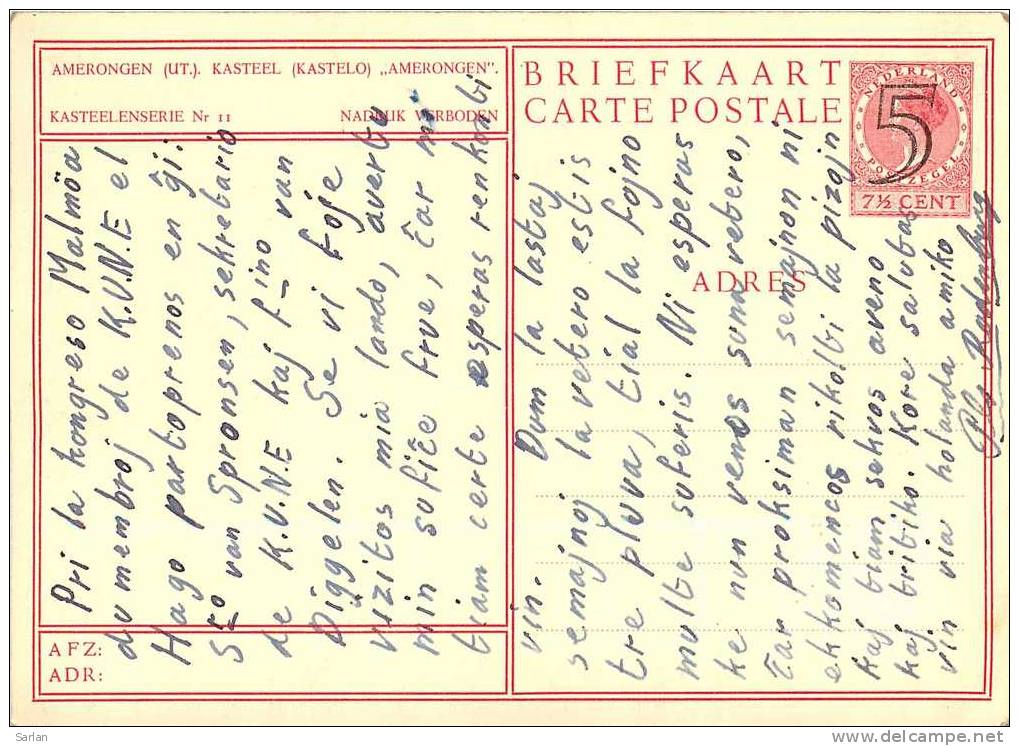 AMERONGEN (UT.). KASTEEL (KASTELO) „AMERONGEN”.
KASTEELENSERIE Nr 11 NADRUK VERBODEN
BRIEFKAART
CARTE POSTALE
NEDERLAND
5
POSTZEGEL
7½ CENT
ADRES
AFZ:
ADR:
Pri la kongreso Malmöa
du membroj de K.U.N.E el
Hago partoprenos en ĝi:
Sro van Spronsen, sekretario
de K.U.N.E kaj f-ino van
Diggelen. Se vi foje
vizitos mia lando, avertu
min sufiĉe frue, ĉar mi
tiam certe esperas renkonbi
vin. Dum la lastaj
semajnoj la vetero estis
tre pluva, tial la fojno
multe suferis. Ni esperas
ke nun venos suna vetero,
ĉar proksiman semajnon ni
ekkomencos rikolbi la pizojn
kaj tiam sekvos aveno
kaj tritiko. Kore salutas
vin via holanda amiko
Sarlan
www.delcampe.net